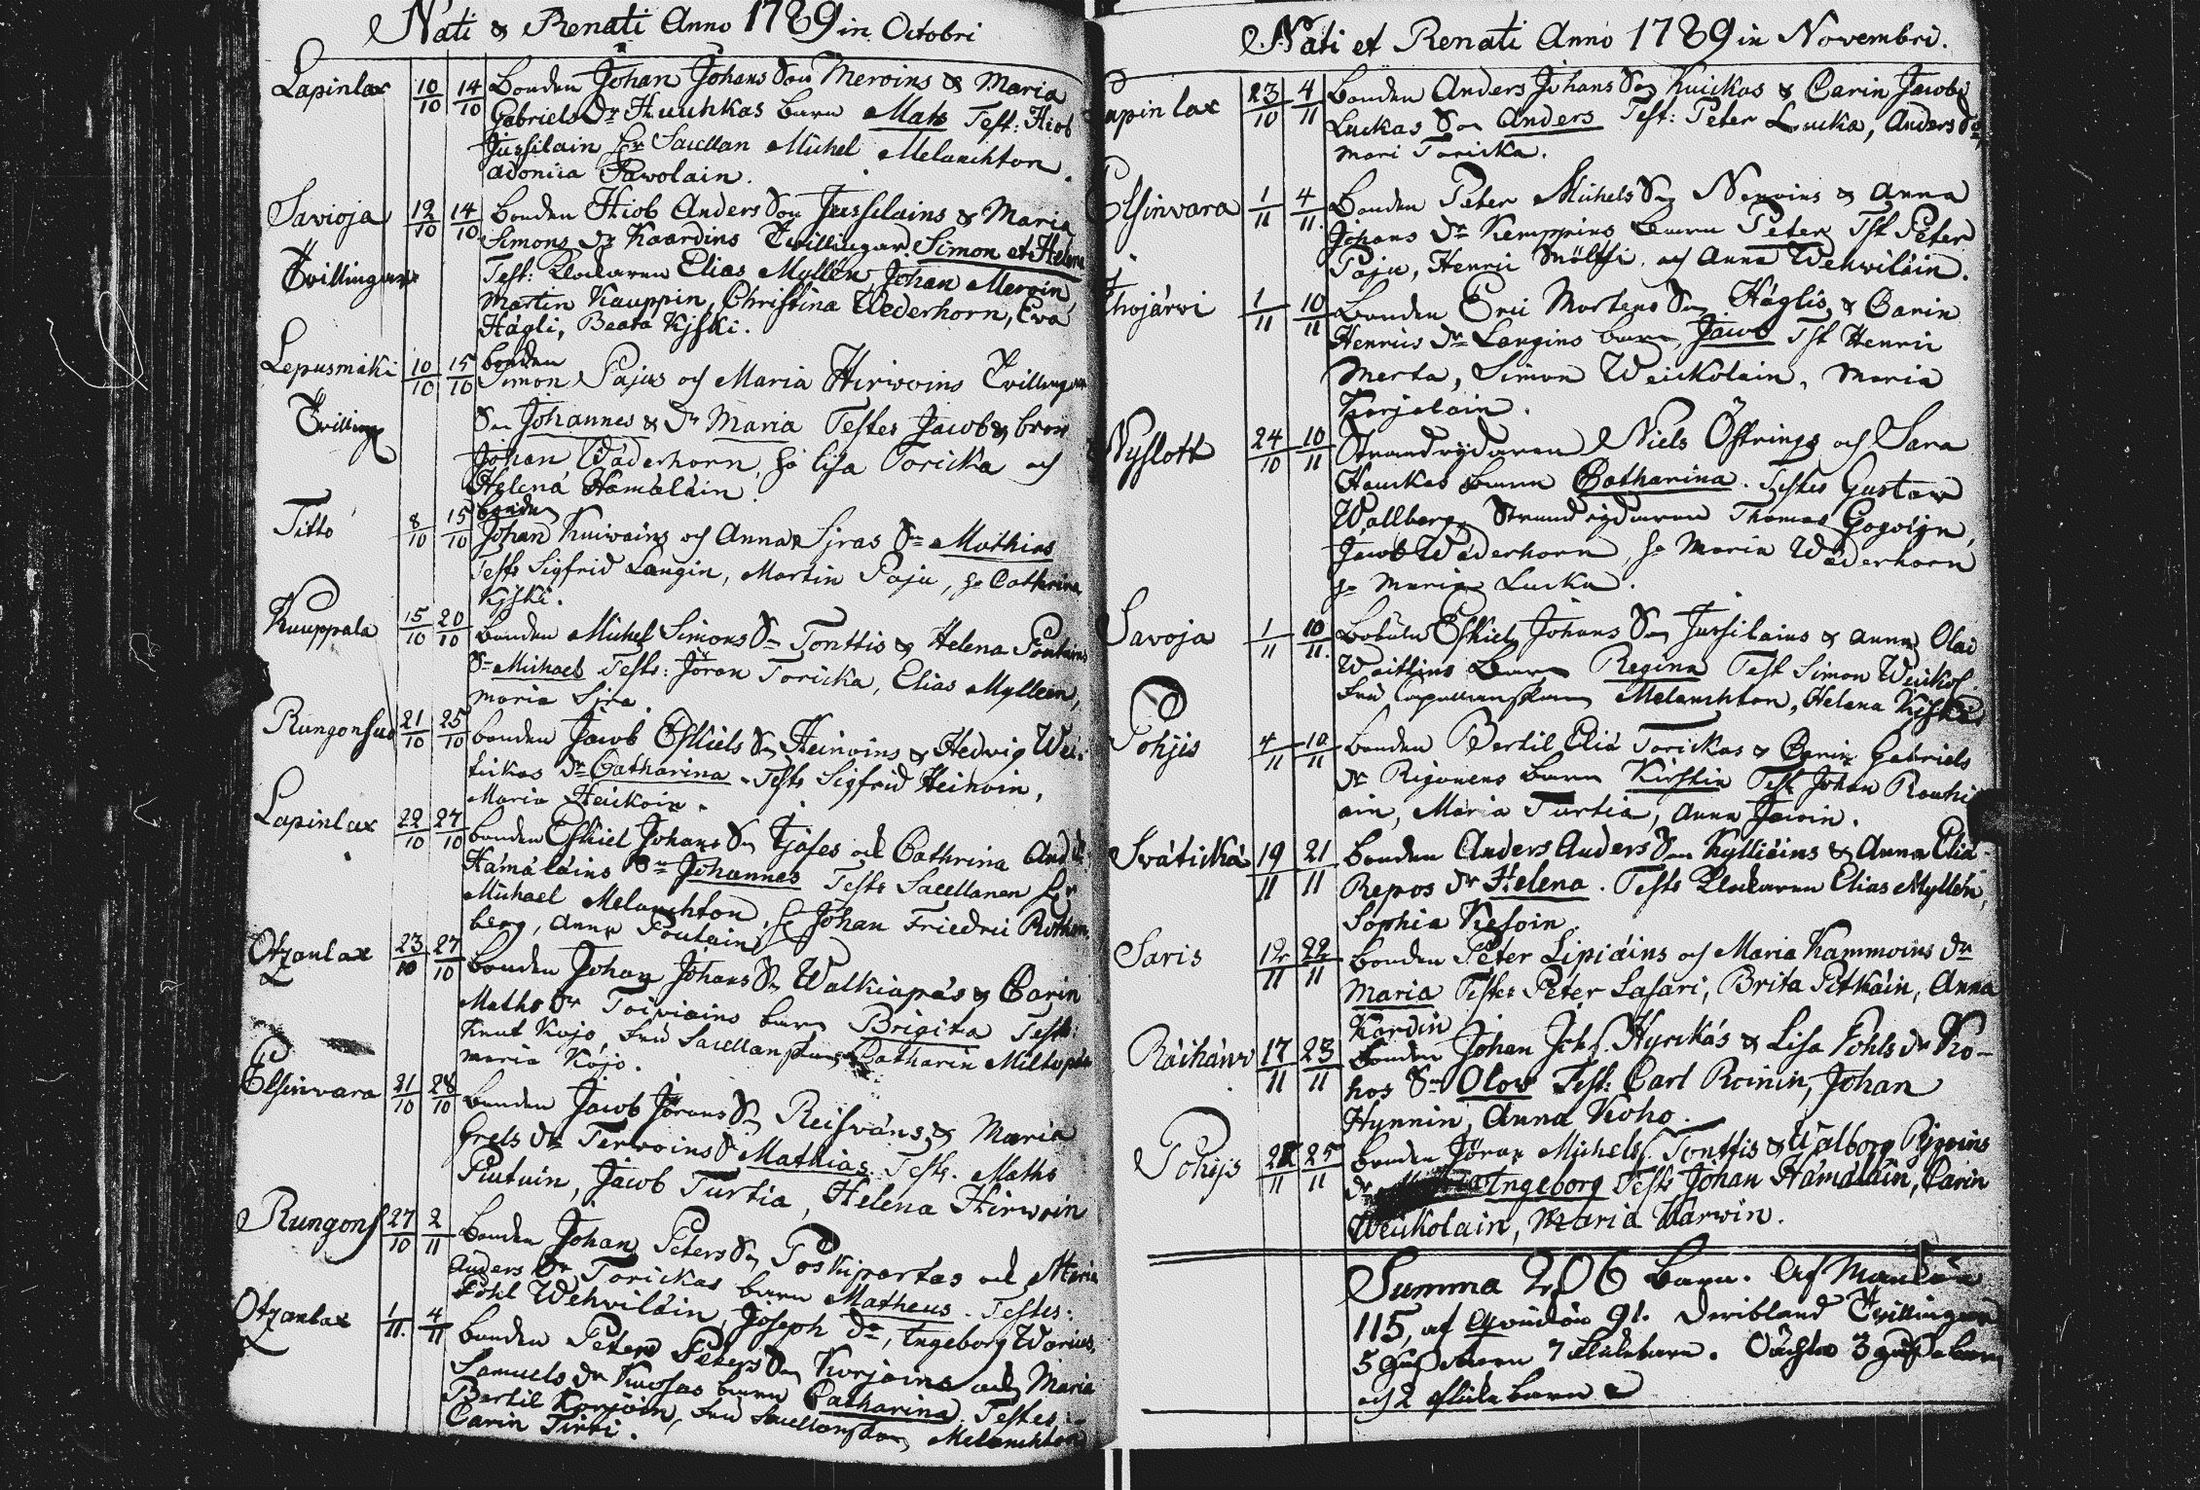 Nati & Renati Anno 1789 in Octobri
Lapinlax 10/10 14/10 Bonden Johan Johans Son Mervins & Maria
Gabriels Dr Huuhkas barn Mats Test: Hiob
Jussilain Hr Sacellan Michel Melanchton
Adonica Pawolain.
Savioja 12/10 14/10 bonden Hiob Anders Son Jussilains & Maria
Simons dr Kaardins Tvillingar Simon et Helena
Tvillingar Test: Klockaren Elias Myllén, Johan Mervin,
Martin Kauppin, Christina Wederhorn, Eva
Hägli, Beata Kiski.
Lepusmäki 10/10 15/10 bonden
Simon Pajus och Maria Hirwoins Tvillingar
Tvilling Sn Johannes & Dr Maria Testes Jacob &
Johan Wäderhorn, hu Lisa Toricka och
Helena Hämäläin.
Titto 8/10 15/10 bonden
Johan Kuiwains och Anna Siras Sn Mathias
Tests Sigfrid Langin, Martin Paju, hu Cathrina
Kiski.
Kauppala 15/10 20/10 bonden Michel Simons Sn Tonttis & Helena Poutains
Sn Michael Tests: Jöran Toricka, Elias Mylleen,
Maria Sira.
Rungonsuo 21/10 25/10 bonden Jacob Eskiels Sn Heinoins & Hedwig Wei-
kickas dr Catharina. Tests Sigfrid Heinoin,
Maria Heickoin.
Lapinlax 22/10 27/10 bonden Eskiel Johans Sn Tjäses och Cathrina And
Hämäläins Sn Johannes Tests Sacellanen Hr
Michael Melanchton, Hr Johan Friedric Rothen-
berg, Anna Poutain
Otzanlax 23/10 27/10 bonden Johan Johans Sn Walkiapäs & Carin
Maths dr Toiviains barn Brigita Tests
Knut Kojo, Fru Sacellanskan Catharin Miltopæa
Maria Kojo.
Elsinvara 21/10 28/10 bonden Jacob Jörans Sn Reisväns & Maria
Grels dr Terwoins Sn Mathias. Tests. Maths
Piutuin, Jacob Turtia, Helena Hirwoin
Rungons 27/10 2/11 bonden Johan Peters Sn Poskipartas och Maria
Anders Dr Torickas barn Matheus. Testes:
Pohl Wehviläin, Joseph dn, Ingeborg Warius.
Otzanlax 1/11 4/11 bonden Peter Peters Son Korjoins och Maria
Samuels dr Kuosas barn Catharina Testes:
Bertil Korjoin, Fru Sacellanskan Melanchton
Carin Tirri.
Nati et Renati Anno 1789 in Novembri.
Lapinlax 23/10 4/11 bonden Anders Johans Son Kuickas & Carin Jacobs
Luckas Son Anders Test: Peter Lucka, Anders dn,
Mari Toricka.
Elsinvara 1/11 4/11 Bonden Peter Michels Son Nevoins & Anna
Johans dr Kemppins barn Peter Tst Peter
Paju, Henric Mölssi, och Anna Wehviläin.
Ihojärvi 1/11 10/11 bonden Eric Mortens Son Häglis & Carin
Henrics dr Langins barn, Jacob Tst Henric
Merta, Simon Weickolain, Maria
Korjolain.
Nyslott 24/10 10/11 Strandrydaren Niels Östrings och Sara
Hauckas barn Catharina. Testes Gustav
Wallberg, Strandrydaren Thomas Gogolin,
Jacob Wäderhorn, hu Maria Wäderhorn
hu Maria Lucka.
Savoja 1/11 10/11 Eskiel Johans Son Jussilains & Anna Olai
Waittins barn Regina Test Simon Weickol.
Fru Capellanskan Melanchton, Helena Kiski
Pohjis 4/11 10/11 bonden Bertil Eliæ Torickas & Carin Gabriels
dr Rigonens barn Kirstin Test Johan Rauhi-
ain, Maria Turtia, Anna Javin.
Svätickä 19/11 21/11 bonden Anders Anders Son Kylliäins & Anna Eliæ
Repos dr Helena. Tests Klockaren Elias Myllén,
Sophia Kesoin
Saris 12/11 22/11 bonden Peter Lipiäins och Maria Kammoins dr
Maria Testes Peter Lasari, Brita Pitkäin, Anna
Kardin
Räihänr 17/11 23/11 bonden Johan Johs. Hyrckäs & Lisa Pohls dr Ko-
hos Sn Olov Test: Carl Roinin, Johan
Hynnin, Anna Koho.
Pohijs 25/11 bonden Jöran Michels Tonttis & Walborg Rigoins
dr Ingeborg Tests Johan Hämäläin, Carin
Weickolain, Maria Warwin.
Summa 206 barn. Af Mankön
115, af Qvinkön 91. Deribland Tvillingar
5 gossebarn 7 flickebarn. Oächta 3 gossebarn
och 2 flickebarn